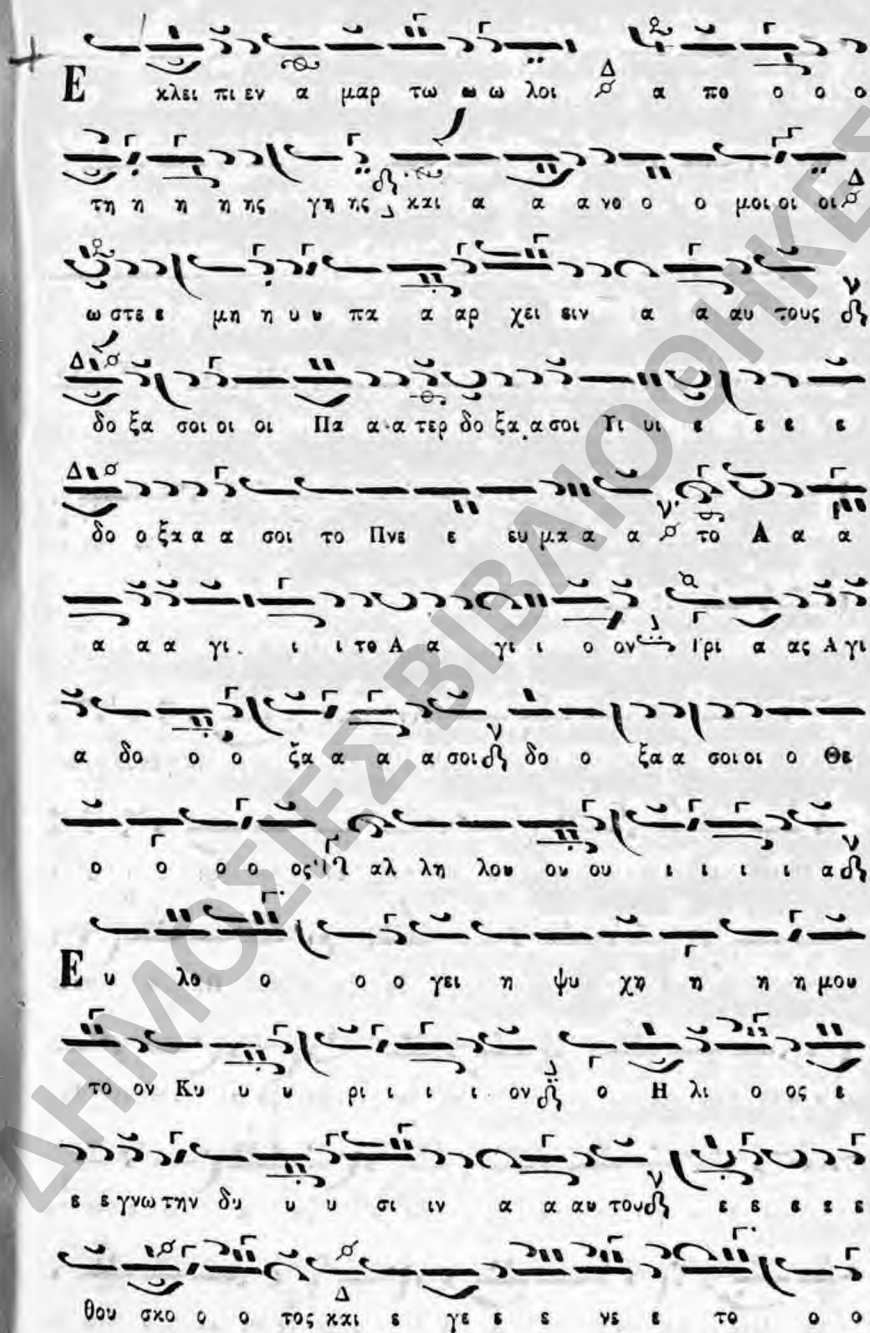 Ε κλει πι εν α μαρ τω ω ω λοι Δ α πο ο ο ο
τη η η ης γη ης και α α α νο ο ο μοι οι οι Δ
ω στε ε μη η υ υ πα α αρ χει ειν α α αυ τους ν
Δ δο ξα σοι οι οι Πα α α τερ δο ξα α σοι Υι υι ε ε ε ε
Δ δο ο ξα α α σοι το Πνε ε ευ μα α α ν το Α α α
α α α γι ι ι το Α α γι ι ο ον Τρι α ας Α γι
α δο ο ο ξα α α α σοι ν δο ο ξα α σοι οι ο Θε
ο ο ο ο ος αλ λη λου ου ου ι ι ι ι α ν
Ε υ λο ο ο ο γει η ψυ χη η η η μου
το ον Κυ υ υ ρι ι ι ι ον ο Η λι ο ος ε
ε ε γνω την δυ υ υ σι ιν α α αυ του ν ε ε ε ε ε
θου σκο ο ο τος και Δ ε γε ε ε νε ε το ο ο
ΔΗΜΟΣΙΕΣ ΒΙΒΛΙΟΘΗΚΕΣ